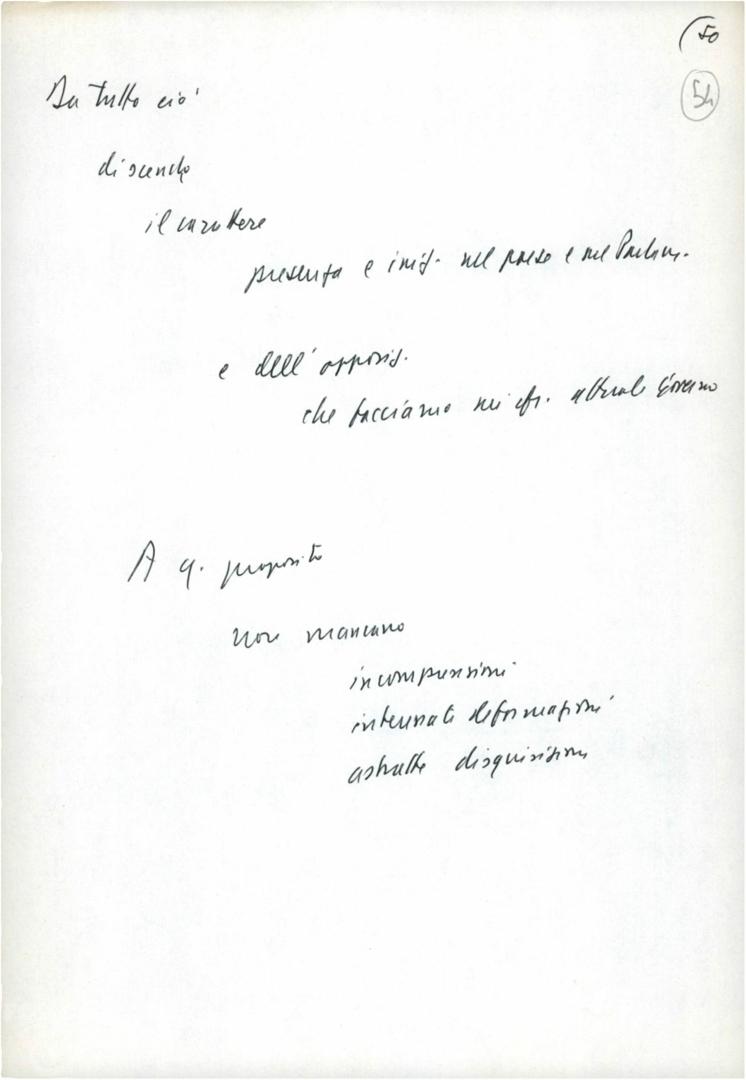 (50
54
Da tutto ciò
discende
il carattere
presenza e iniz. nel paese e nel Parlam.
e dell'opposiz.
che facciamo nei cfr. attuale Governo
A q. proposito
non mancano
incomprensioni
interessate deformazioni
astratte disquisizioni